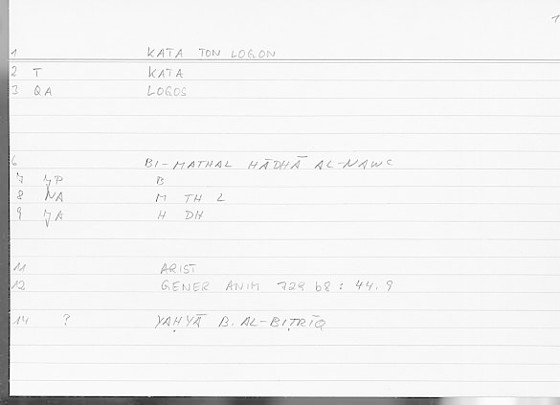 1
1 KATA TON LOGON
2 T KATA
3 QA LOGOS
6 BI-MATHAL HĀDHĀ AL-NAWC
7 JP B
8 NA M TH L
9 JA H DH
11 ARIST
12 GENER ANIM 729 b8 : 44.9
14 ? YAḤYĀ B. AL-BIṬRĪQ